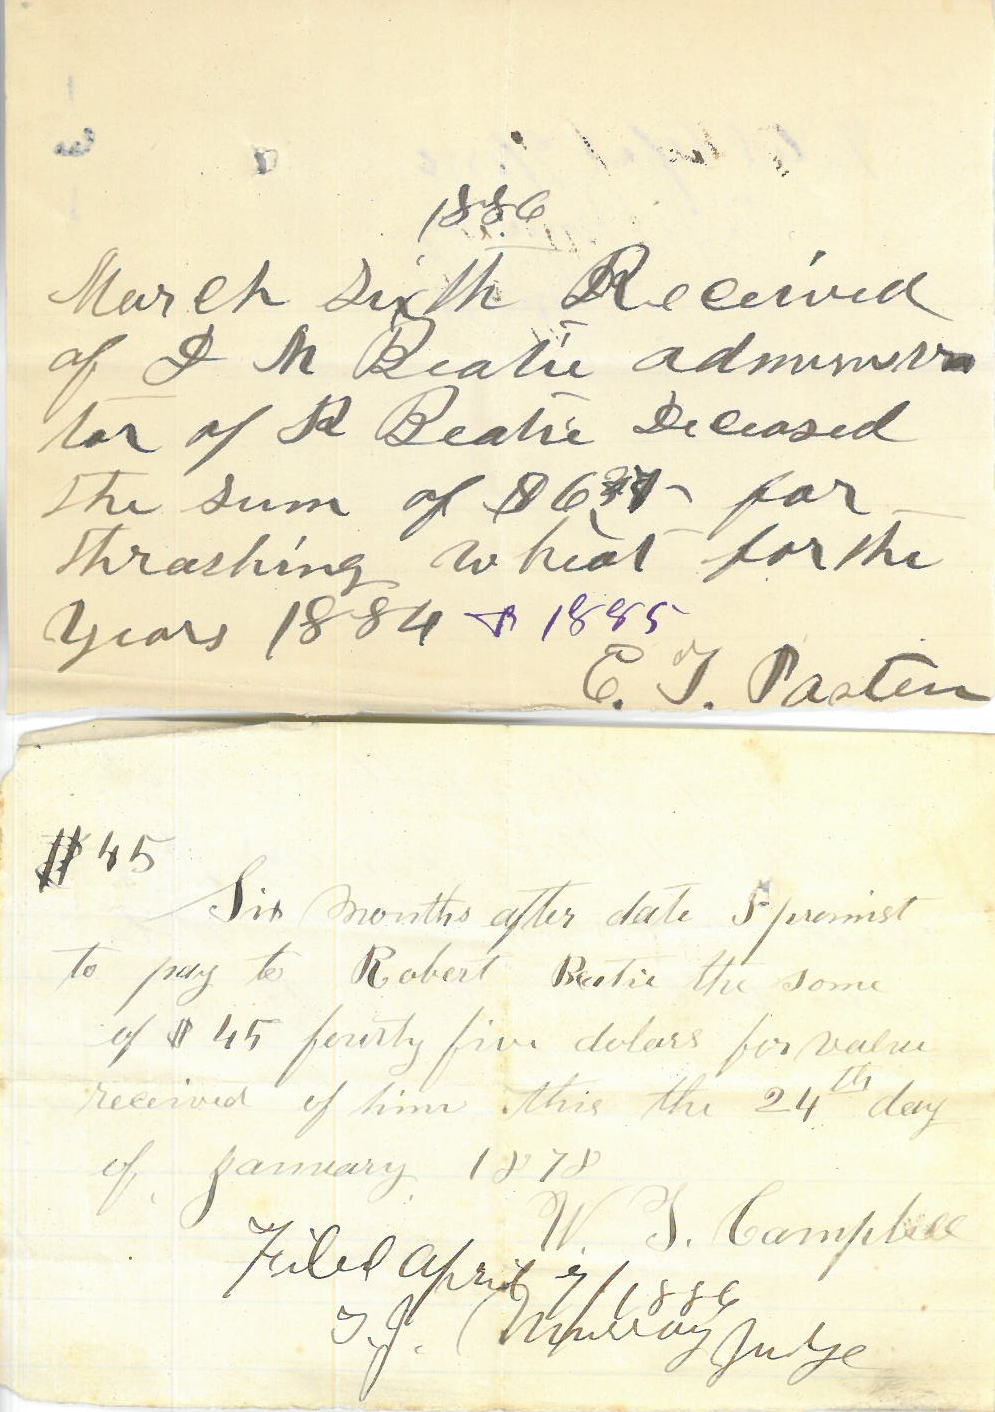 1886
March sixth Received
of D M Beatie administra
tor of R Beatie Deceased
the sum of $6 for
thrashing wheat for the
years 1884 & 1885
E. T. Pasten
$45
Six months after date I promist
to pay to Robert Beatie the some
of $45 fourty five dolars for value
received of him this the 24th day
of January 1878
W. T. Campbell
Filed April 7/1886
T.J. Murray Judge